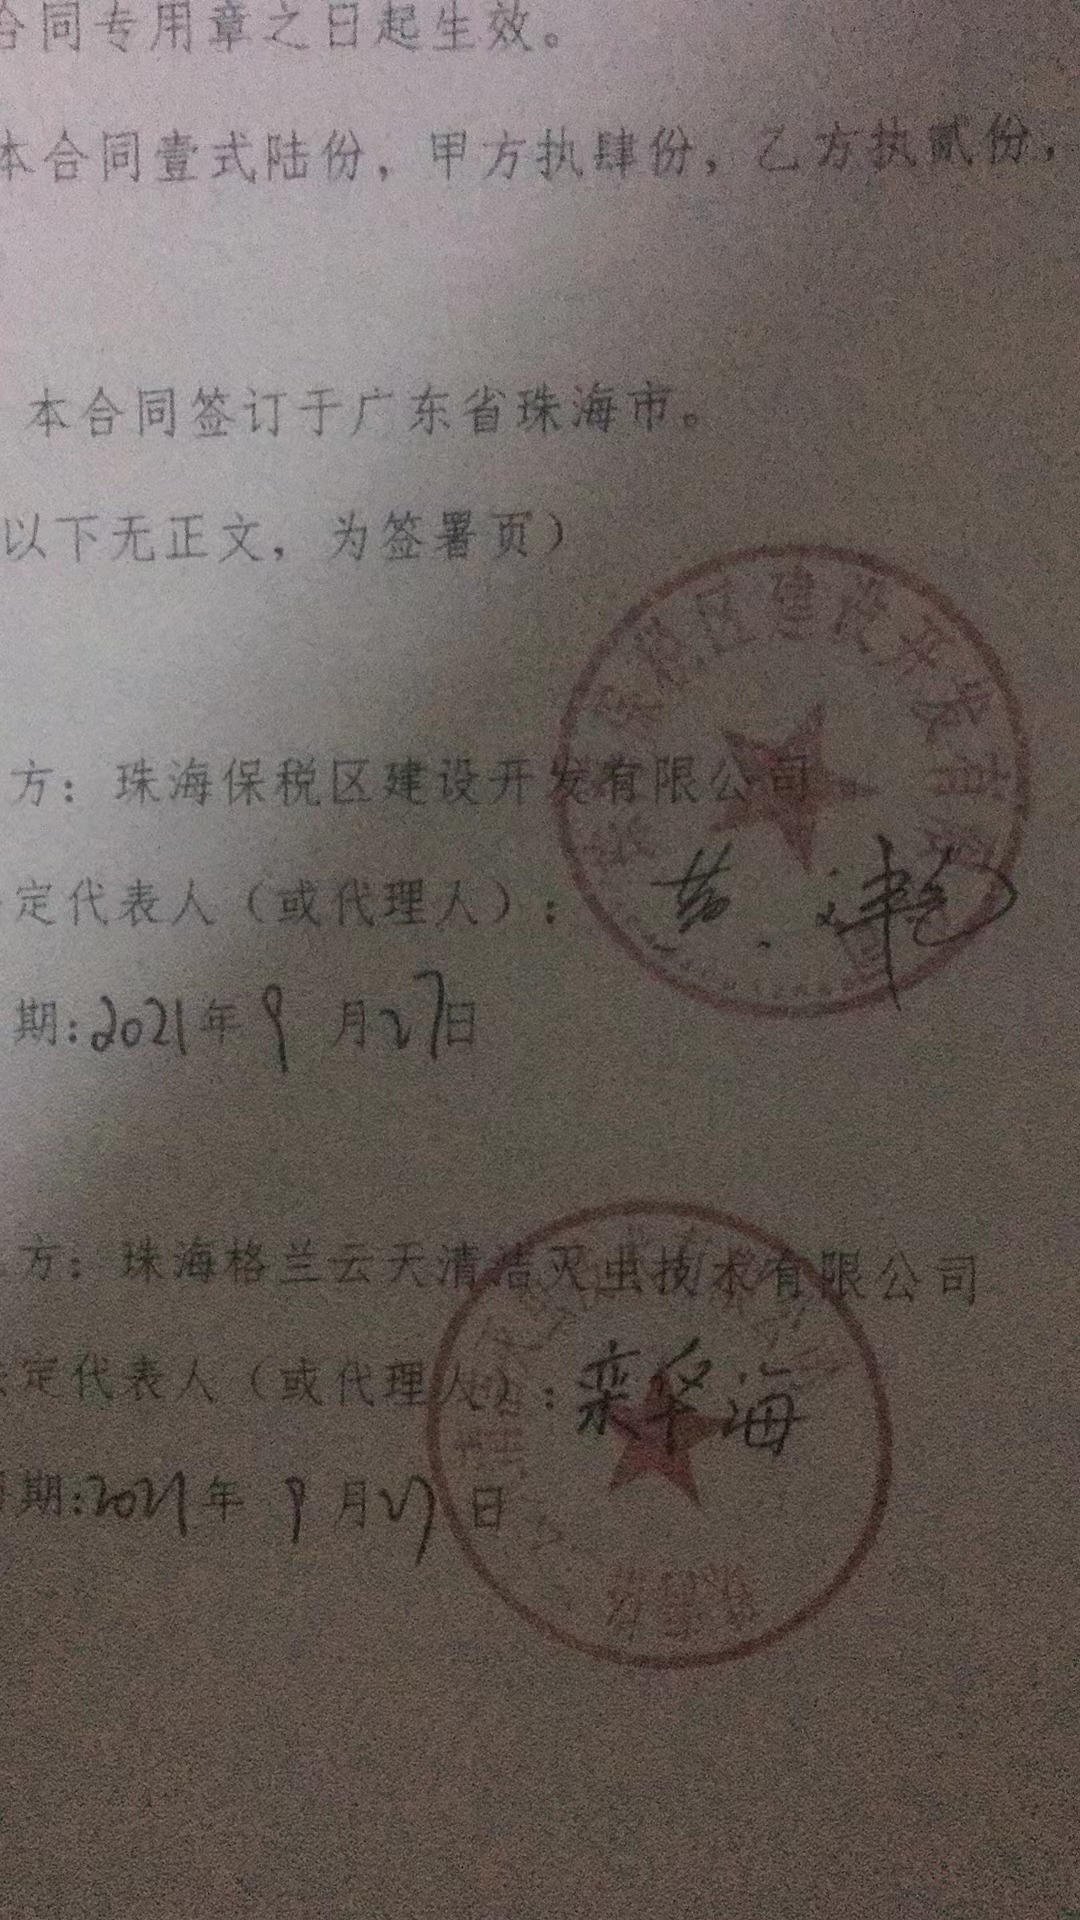 合同专用章之日起生效。
本合同壹式陆份，甲方执肆份，乙方执贰份，
本合同签订于广东省珠海市。
以下无正文，为签署页）
方：珠海保税区建设开发有限公司
定代表人（或代理人）：
期:2021年9月27日
方：珠海格兰云天清洁灭虫技术有限公司
定代表人（或代理人）：栾华海
期:2021年9月27日
保税区建设开发有限